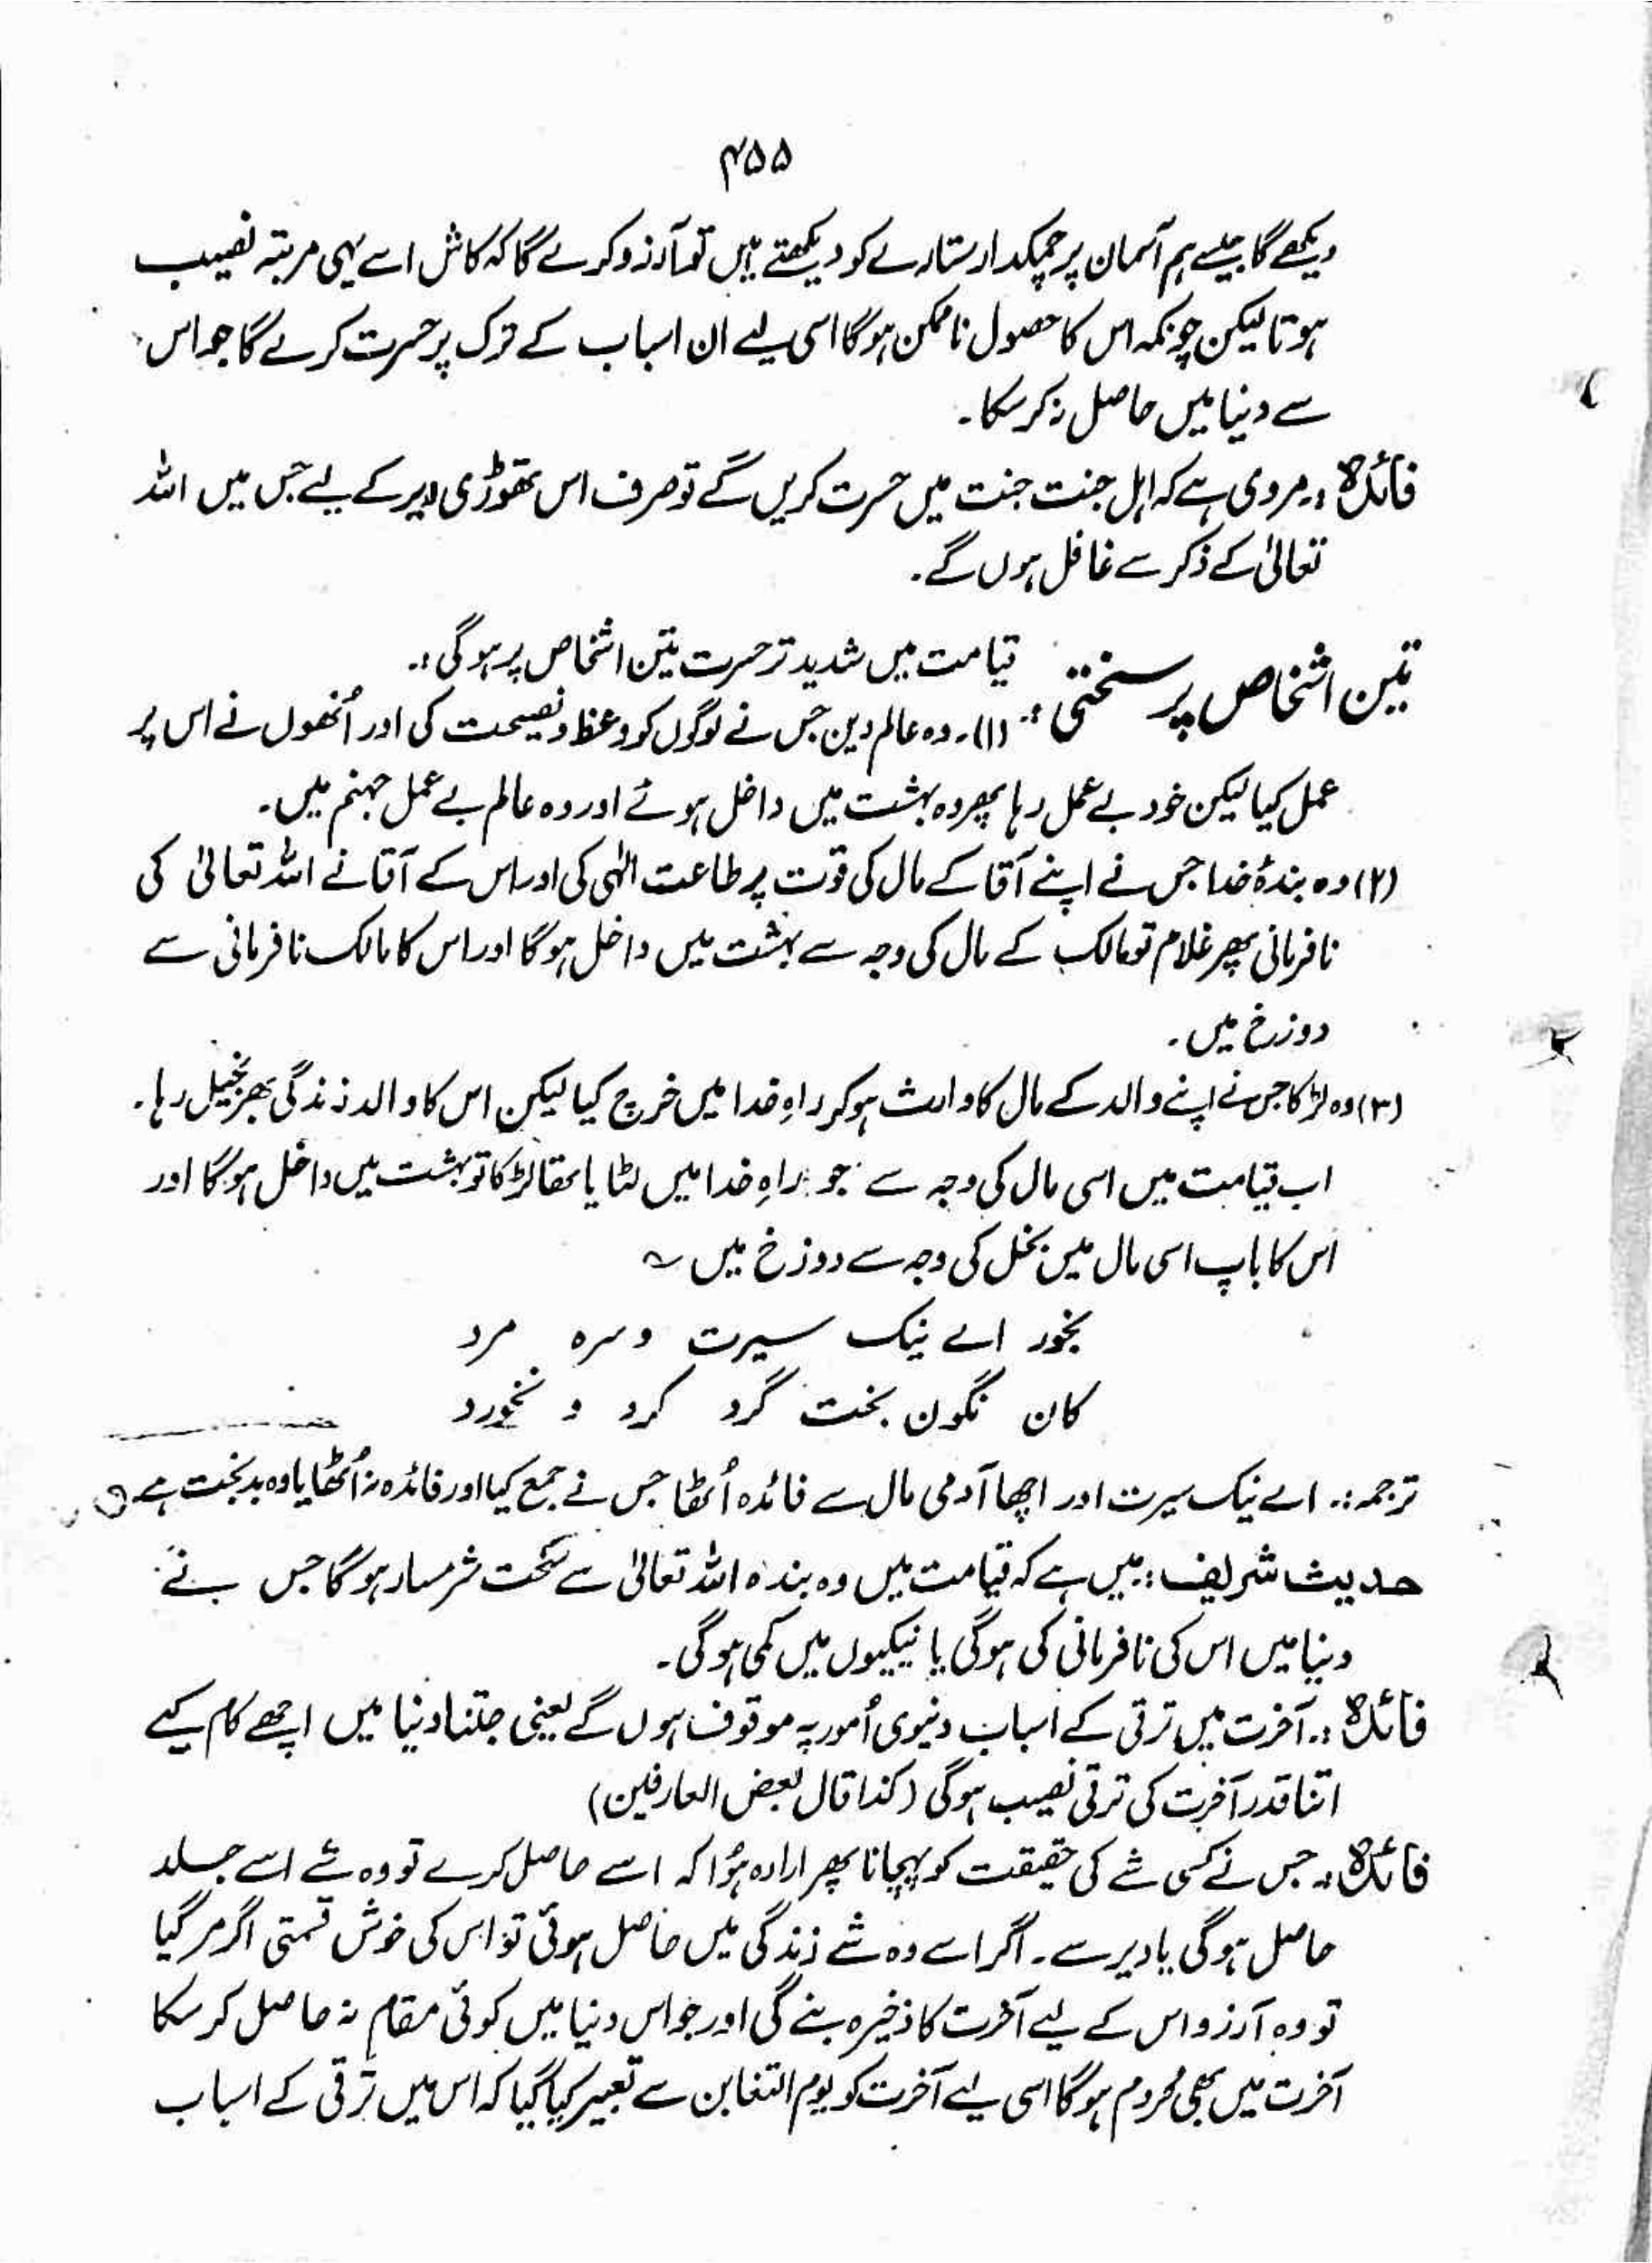 ۴۵۵
دیکھے گا جیسے ہم آسمان پر چمکدار ستارے کو دیکھتے ہیں تو آرزو کرے گا کہ کاش اسے یہی مرتبہ نصیب
ہوتا لیکن چونکہ اس کا حصول ناممکن ہوگا اسی لیے ان اسباب کے ترک پر حسرت کرے گا جو اس
سے دنیا میں حاصل نہ کرسکا۔
فائدہ :۔ مروی ہے کہ اہل جنت جنت میں حسرت کریں گے تو صرف اس تھوڑی دیر کے لیے جس میں اللہ
تعالیٰ کے ذکر سے غافل ہوں گے۔
تین اشخاص پر سختی :۔ قیامت میں شدید تر حسرت تین اشخاص پر ہوگی :۔
(۱)۔ وہ عالم دین جس نے لوگوں کو وعظ و نصیحت کی اور اُنھوں نے اس پر
عمل کیا لیکن خود بے عمل رہا پھر وہ بہشت میں داخل ہوئے اور وہ عالم بے عمل جہنم میں۔
(۲) وہ بندۂ خدا جس نے اپنے آقا کے مال کی قوت پر طاعت الٰہی کی اور اس کے آقا نے اللہ تعالیٰ کی
نافرمانی پھر غلام تو مالک کے مال کی وجہ سے بہشت میں داخل ہوگا اور اس کا مالک نافرمانی سے
دوزخ میں۔
(۳) وہ لڑکا جس نے اپنے والد کے مال کا وارث ہو کر راہِ خدا میں خرچ کیا لیکن اس کا والد زندگی بھر بخیل رہا۔
اب قیامت میں اسی مال کی وجہ سے جو راہِ خدا میں لٹایا تھا لڑکا تو بہشت میں داخل ہوگا اور
اس کا باپ اسی مال میں بخل کی وجہ سے دوزخ میں ؎
بخور اے نیک سیرت و سرہ مرد
کان نگون بخت گرد کرد و نخورد
ترجمہ :۔ اے نیک سیرت اور اچھا آدمی مال سے فائدہ اُٹھا جس نے جمع کیا اور فائدہ نہ اُٹھایا وہ بدبخت ہے
حدیث شریف :۔ میں ہے کہ قیامت میں وہ بندہ اللہ تعالیٰ سے سخت شرمسار ہوگا جس نے
دنیا میں اس کی نافرمانی کی ہوگی یا نیکیوں میں کمی ہوگی۔
فائدہ :۔ آخرت میں ترقی کے اسباب دنیوی اُمور پہ موقوف ہوں گے یعنی جتنا دنیا میں اچھے کام کیے
اتنا قدر آخرت کی ترقی نصیب ہوگی (کذا قال بعض العارفین)
فائدہ :۔ جس نے کسی شے کی حقیقت کو پہچانا پھر ارادہ ہُوا کہ اسے حاصل کرے تو وہ شے اسے جلد
حاصل ہوگی یا دیر سے۔ اگر اسے وہ شے زندگی میں حاصل ہوئی تو اس کی خوش قسمتی اگر مر گیا
تو وہ آرزو اس کے لیے آخرت کا ذخیرہ بنے گی اور جو اس دنیا میں کوئی مقام نہ حاصل کر سکا
آخرت میں بھی محروم ہوگا اسی لیے آخرت کو یوم التغابن سے تعبیر کیا گیا کہ اس میں ترقی کے اسباب